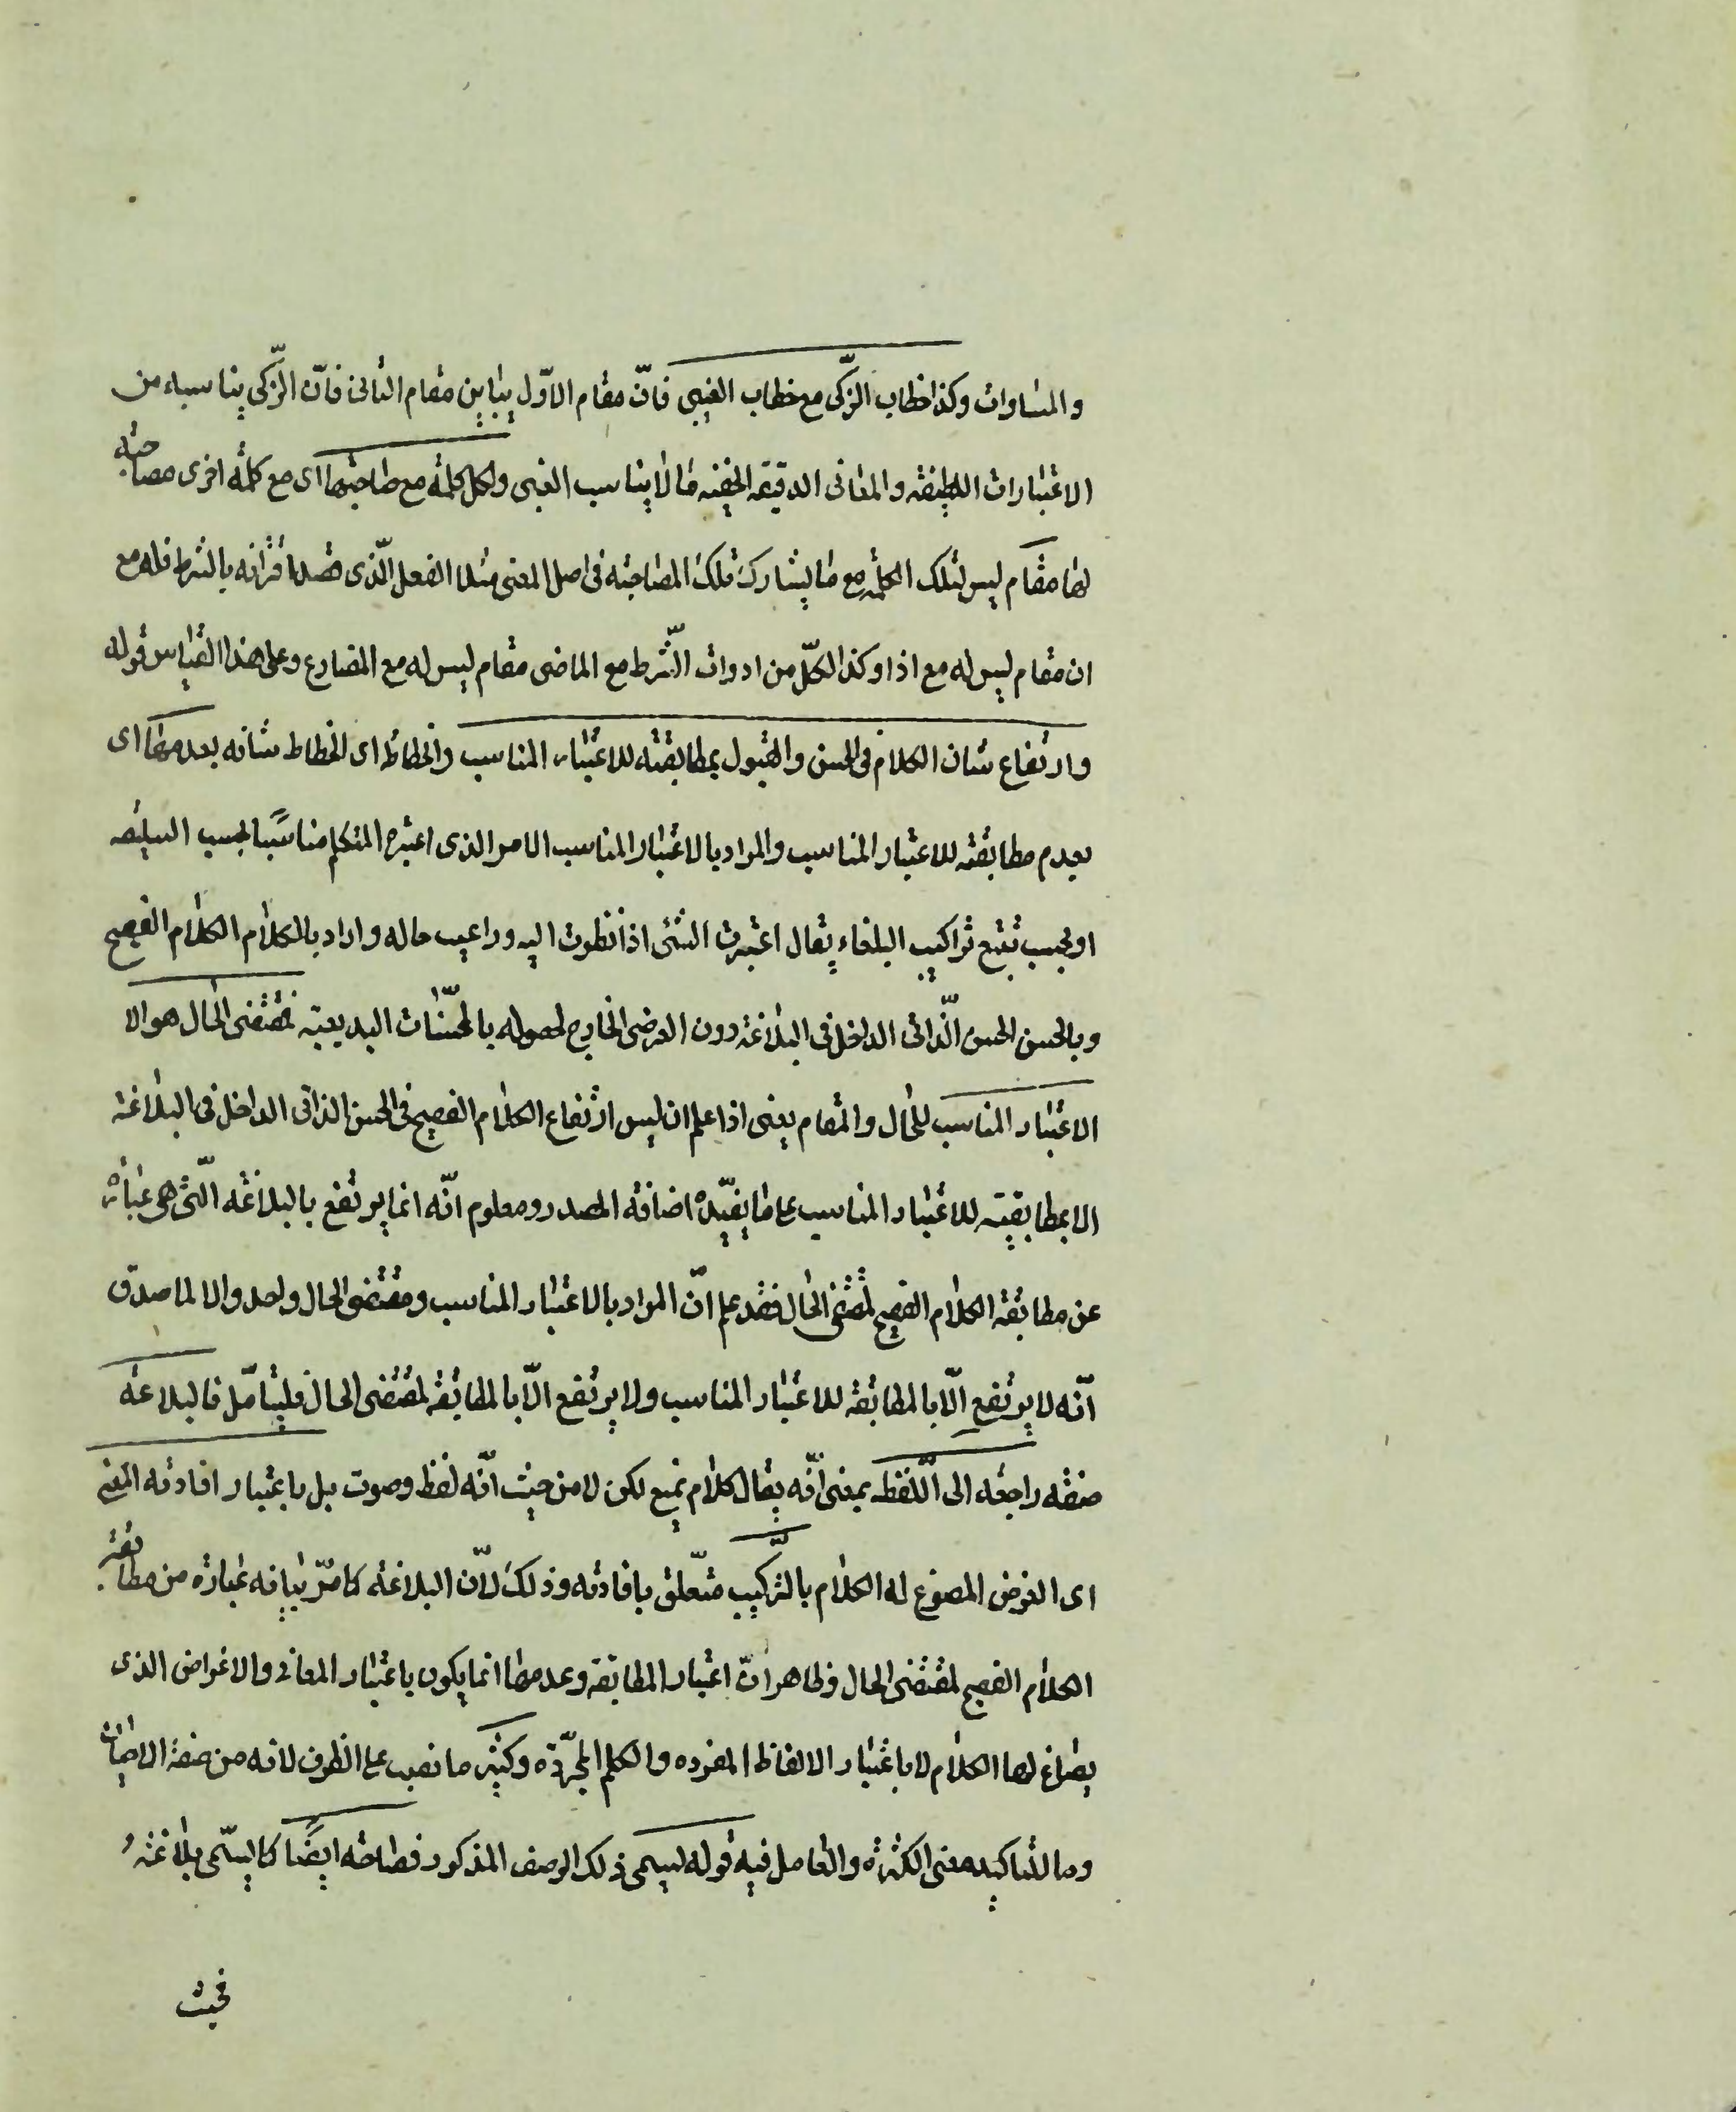 والمساوات وكذا خطاب الزّكى مع خطاب الغبى فانّ مقام الاوّل يباين مقام الثانى فانّ الزّكى يناسبه من
الاعتبارات اللطيفه والمعانى الدقيقه الخفيه مالا يناسب الغبى ولكل كلمة مع صاحبتها اى مع كلمة اخرى مصاحبة
لها مقام ليس لتلك الكلمة مع ما يشارك تلك المصاحبه فى اصل المعنى مثلا الفعل الّذى قصد اقترانه بالشرط فله مع
ان مقام ليس له مع اذا وكذا لكلّ من ادوات الشّرط مع الماضى مقام ليس له مع المضارع وعلى هذا القياس قوله
وارتفاع شان الكلام فى الحسن والقبول بمطابقته للاعتبار المناسب وانحطاطه اى انحطاط شانه بعدمها اى
بعدم مطابقته للاعتبار المناسب والمراد بالاعتبار المناسب الامر الذى اعتبره المتكلم مناسبًا بحسب السليقه
او بحسب تتبع تراكيب البلغاء يقال اعتبرت الشئ اذا نظرت اليه وراعيت حاله واراد بالكلام الكلام الفصيح
وبالحسن الحسن الّذاتى الداخل فى البلاغة دون العرضى الخارج لحصوله بالمحسّنات البديعية فمقتضى الحال هو الا
الاعتبار المناسب للحال والمقام يعنى اذا علم ان ليس ارتفاع الكلام الفصيح فى الحسن الذاتى الداخل فى البلاغة
الا بمطابقته للاعتبار المناسب على ما يفيده اضافة المصدر ومعلوم انّه انما يرتفع بالبلاغة الّتى هى عبارة
عن مطابقة الكلام الفصيح لمقتضى الحال فقد علم انّ المراد بالاعتبار المناسب ومقتضى الحال واحد والا لما صدق
انّه لا يرتفع الّا بالمطابقة للاعتبار المناسب ولا يرتفع الّا بالمطابقة لمقتضى الحال فليتامّل فالبلاغة
صفة راجعة الى اللّفظ بمعنى انّه يقال كلام بليغ لكن لا من حيث انّه لفظ وصوت بل باعتبار افادته المعنى
اى الغرض المصوغ له الكلام بالتّركيب متعلّق بافادته وذلك لانّ البلاغة كما مرّ بيانه عبارة من مطابقة
الكلام الفصيح لمقتضى الحال وظاهر انّ اعتبار المطابقة وعدمها انما يكون باعتبار المعانى والاغراض الذى
يصاغ لها الكلام لا باعتبار الالفاظ المفرده والكلم المجرّدة وكثيرا ما نصب على الظرف لانه من صفة الاحيان
وما لتاكيد معنى الكثرة والعامل فيه قوله يسمى ذلك الوصف المذكور فصاحة ايضًا كما يسمّى بلاغة
فحيث